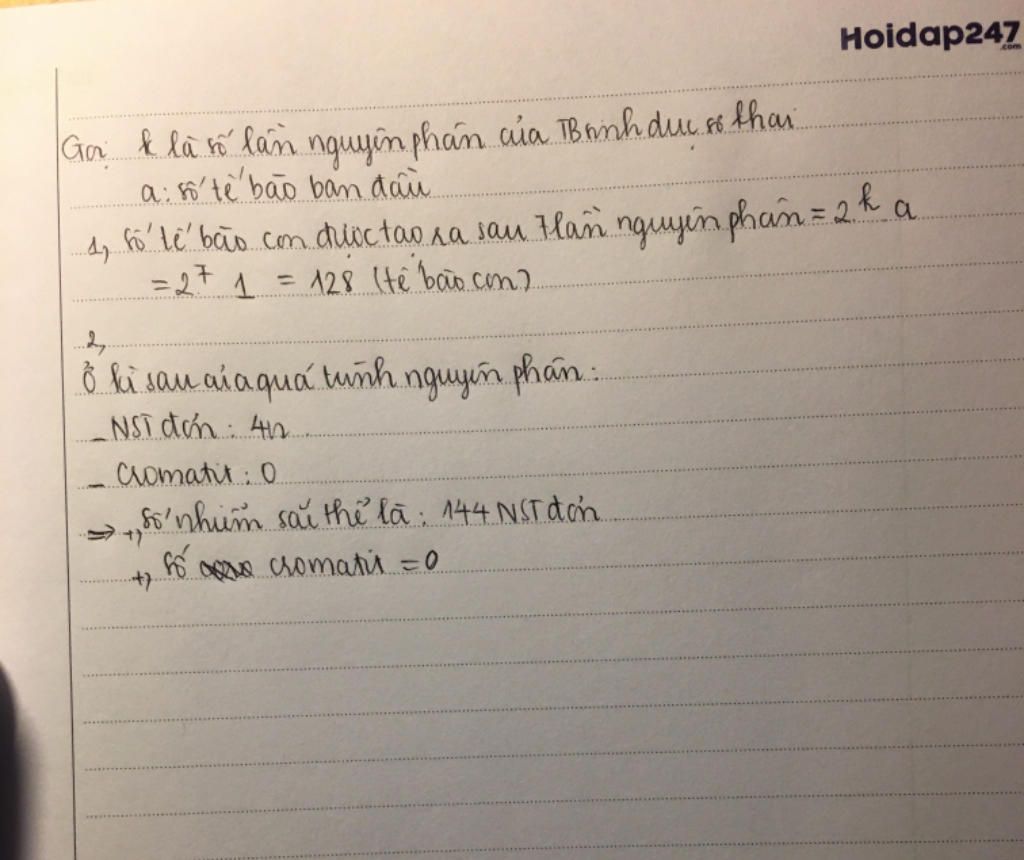 Hoidap247
.com
Gọi k là số lần nguyên phân của TB sinh dục sơ khai
a: số tế bào ban đầu
1, số tế bào con được tạo ra sau 7 lần nguyên phân = 2^k a
= 2^7 1 = 128 (tế bào con)
2,
Ở kì sau của quá trình nguyên phân:
- NST đơn: 4n
- Cromatit: 0
=> +, số nhiễm sắc thể là: 144 NST đơn
+, số cromatit = 0